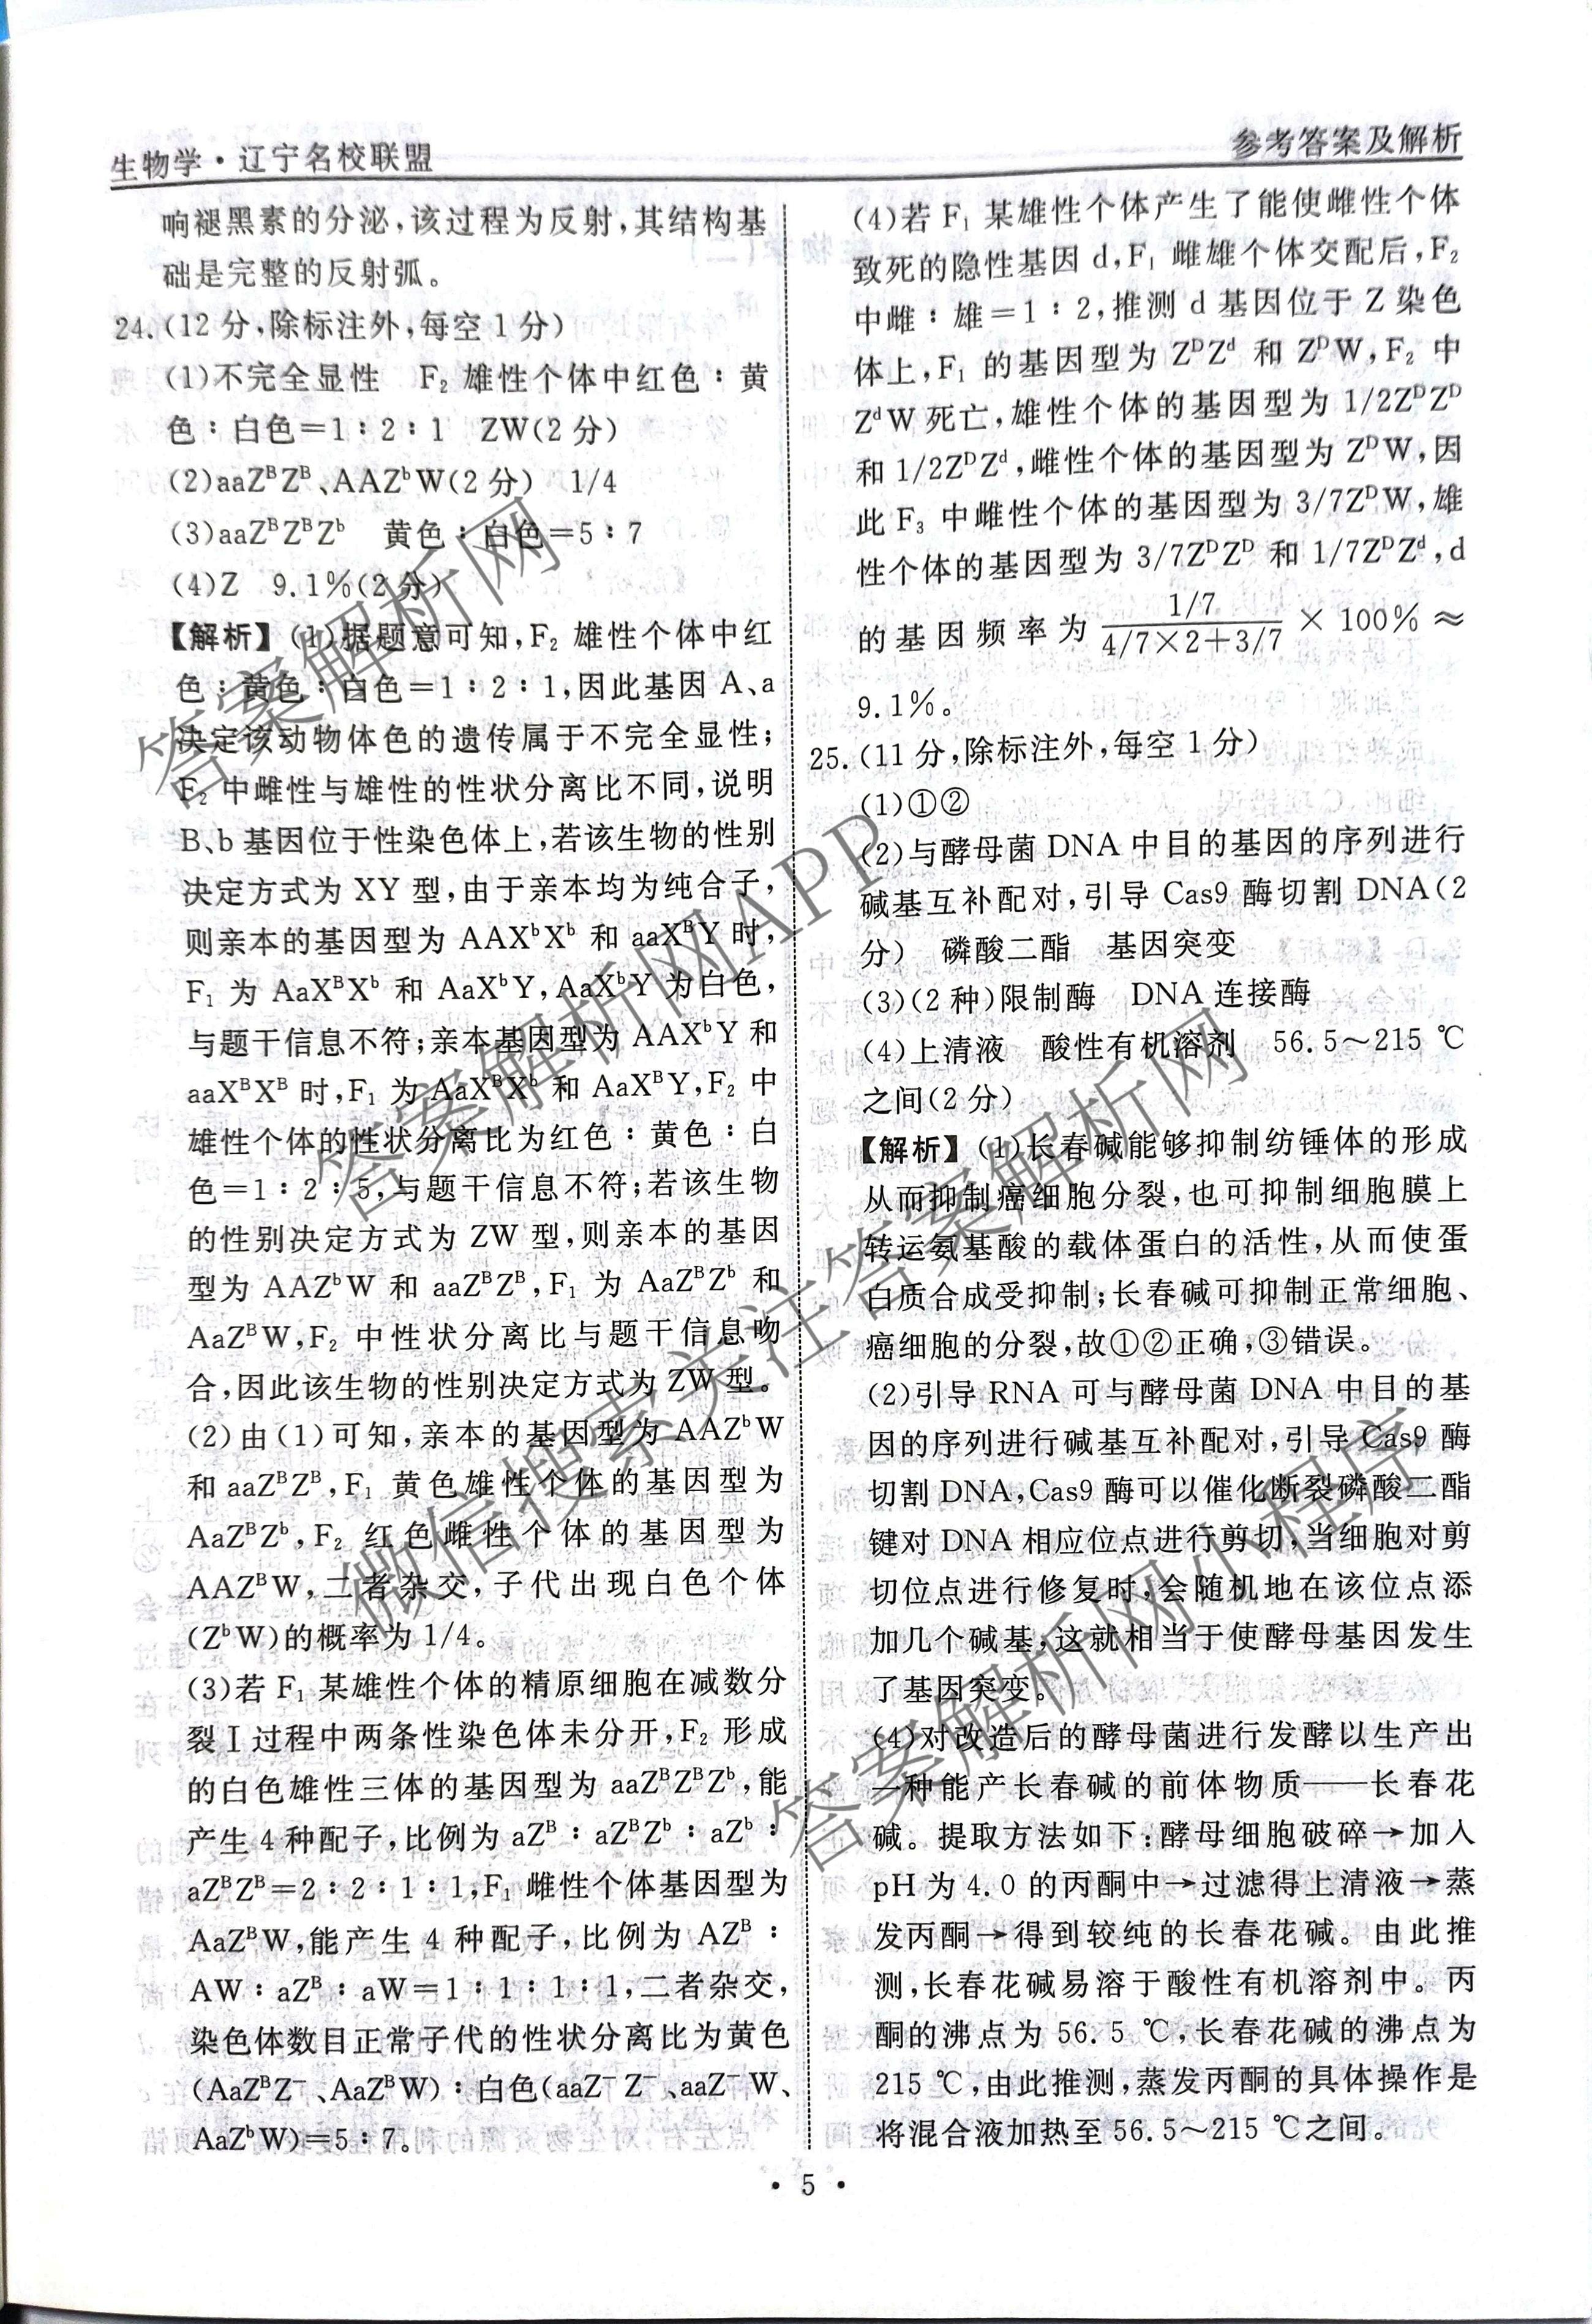 生物学·辽宁名校联盟
参考答案及解析
响褪黑素的分泌,该过程为反射,其结构基
础是完整的反射弧。
24.(12分,除标注外,每空1分)
(1)不完全显性 F₂雄性个体中红色∶黄
色∶白色=1∶2∶1 ZW(2分)
(2)aaZᴮZᴮ、AAZᵇW(2分) 1/4
(3)aaZᴮZᴮZᵇ 黄色∶白色=5∶7
(4)Z 9.1%(2分)
【解析】(1)据题意可知,F₂雄性个体中红
色∶黄色∶白色=1∶2∶1,因此基因A、a
决定该动物体色的遗传属于不完全显性;
F₂中雌性与雄性的性状分离比不同,说明
B、b基因位于性染色体上,若该生物的性别
决定方式为XY型,由于亲本均为纯合子,
则亲本的基因型为AAXᵇXᵇ和aaXᴮY时,
F₁为AaXᴮXᵇ和AaXᵇY,AaXᵇY为白色,
与题干信息不符;亲本基因型为AAXᵇY和
aaXᴮXᴮ时,F₁为AaXᴮXᵇ和AaXᴮY,F₂中
雄性个体的性状分离比为红色∶黄色∶白
色=1∶2∶5,与题干信息不符;若该生物
的性别决定方式为ZW型,则亲本的基因
型为AAZᵇW和aaZᴮZᴮ,F₁为AaZᴮZᵇ和
AaZᴮW,F₂中性状分离比与题干信息吻
合,因此该生物的性别决定方式为ZW型。
(2)由(1)可知,亲本的基因型为AAZᵇW
和aaZᴮZᴮ,F₁黄色雄性个体的基因型为
AaZᴮZᵇ,F₂红色雌性个体的基因型为
AAZᴮW,二者杂交,子代出现白色个体
(ZᵇW)的概率为1/4。
(3)若F₁某雄性个体的精原细胞在减数分
裂Ⅰ过程中两条性染色体未分开,F₂形成
的白色雄性三体的基因型为aaZᴮZᴮZᵇ,能
产生4种配子,比例为aZᴮ∶aZᴮZᵇ∶aZᵇ∶
aZᴮZᴮ=2∶2∶1∶1,F₁雌性个体基因型为
AaZᴮW,能产生4种配子,比例为AZᴮ∶
AW∶aZᴮ∶aW=1∶1∶1∶1,二者杂交,
染色体数目正常子代的性状分离比为黄色
(AaZᴮZ⁻、AaZᴮW)∶白色(aaZ⁻Z⁻、aaZ⁻W、
AaZᵇW)=5∶7。
(4)若F₁某雄性个体产生了能使雌性个体
致死的隐性基因d,F₁雌雄个体交配后,F₂
中雌∶雄=1∶2,推测d基因位于Z染色
体上,F₁的基因型为ZᴰZᵈ和ZᴰW,F₂中
ZᵈW死亡,雄性个体的基因型为1/2ZᴰZᴰ
和1/2ZᴰZᵈ,雌性个体的基因型为ZᴰW,因
此F₃中雌性个体的基因型为3/7ZᴰW,雄
性个体的基因型为3/7ZᴰZᴰ和1/7ZᴰZᵈ,d
的基因频率为 (1/7)/(4/7×2+3/7) ×100%≈
9.1%。
25.(11分,除标注外,每空1分)
(1)①②
(2)与酵母菌DNA中目的基因的序列进行
碱基互补配对,引导Cas9酶切割DNA(2
分) 磷酸二酯 基因突变
(3)(2种)限制酶 DNA连接酶
(4)上清液 酸性有机溶剂 56.5～215 ℃
之间(2分)
【解析】(1)长春碱能够抑制纺锤体的形成
从而抑制癌细胞分裂,也可抑制细胞膜上
转运氨基酸的载体蛋白的活性,从而使蛋
白质合成受抑制;长春碱可抑制正常细胞、
癌细胞的分裂,故①②正确,③错误。
(2)引导RNA可与酵母菌DNA中目的基
因的序列进行碱基互补配对,引导Cas9酶
切割DNA,Cas9酶可以催化断裂磷酸二酯
键对DNA相应位点进行剪切,当细胞对剪
切位点进行修复时,会随机地在该位点添
加几个碱基,这就相当于使酵母基因发生
了基因突变。
(4)对改造后的酵母菌进行发酵以生产出
一种能产长春碱的前体物质——长春花
碱。提取方法如下:酵母细胞破碎→加入
pH为4.0的丙酮中→过滤得上清液→蒸
发丙酮→得到较纯的长春花碱。由此推
测,长春花碱易溶于酸性有机溶剂中。丙
酮的沸点为56.5 ℃,长春花碱的沸点为
215 ℃,由此推测,蒸发丙酮的具体操作是
将混合液加热至56.5～215 ℃之间。
·5·
答案解析网
答案解析网APP
微信搜索关注答案解析网
答案解析网小程序